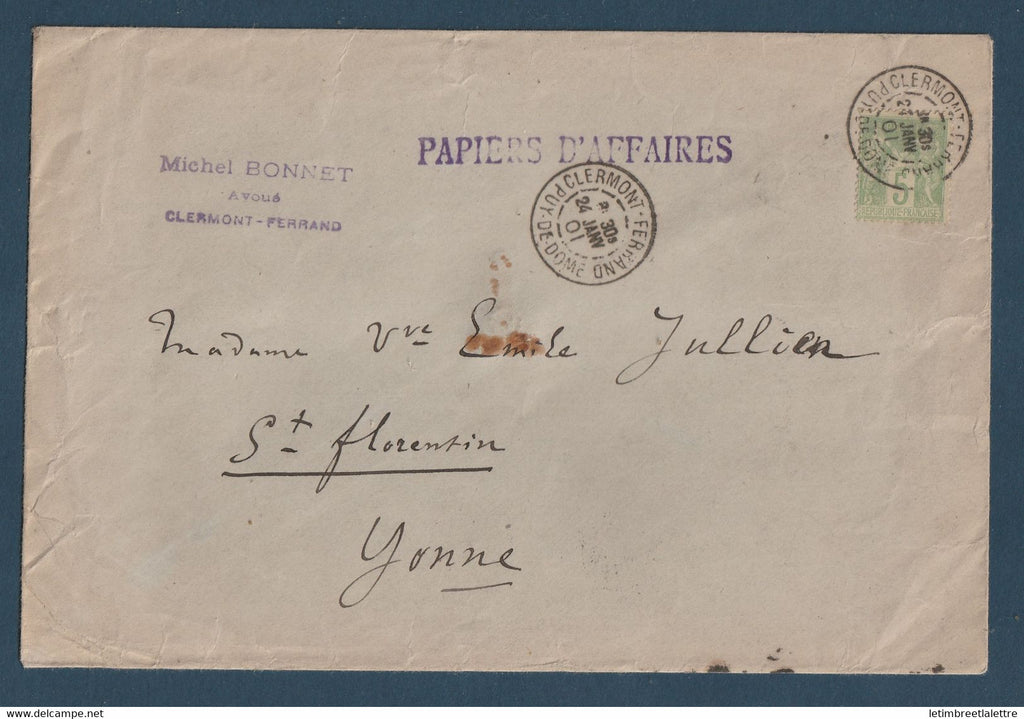 PAPIERS D'AFFAIRES
Michel BONNET
Avoué
CLERMONT-FERRAND
CLERMONT-FERRAND
30s
24 JANV
01
PUY-DE-DOME
CLERMONT-FERRAND
30s
24 JANV
01
PUY-DE-DOME
5
REPUBLIQUE FRANÇAISE
Madame Vve Emile Jullien
St florentin
Yonne
delcampe.net
letimbreetlalettre